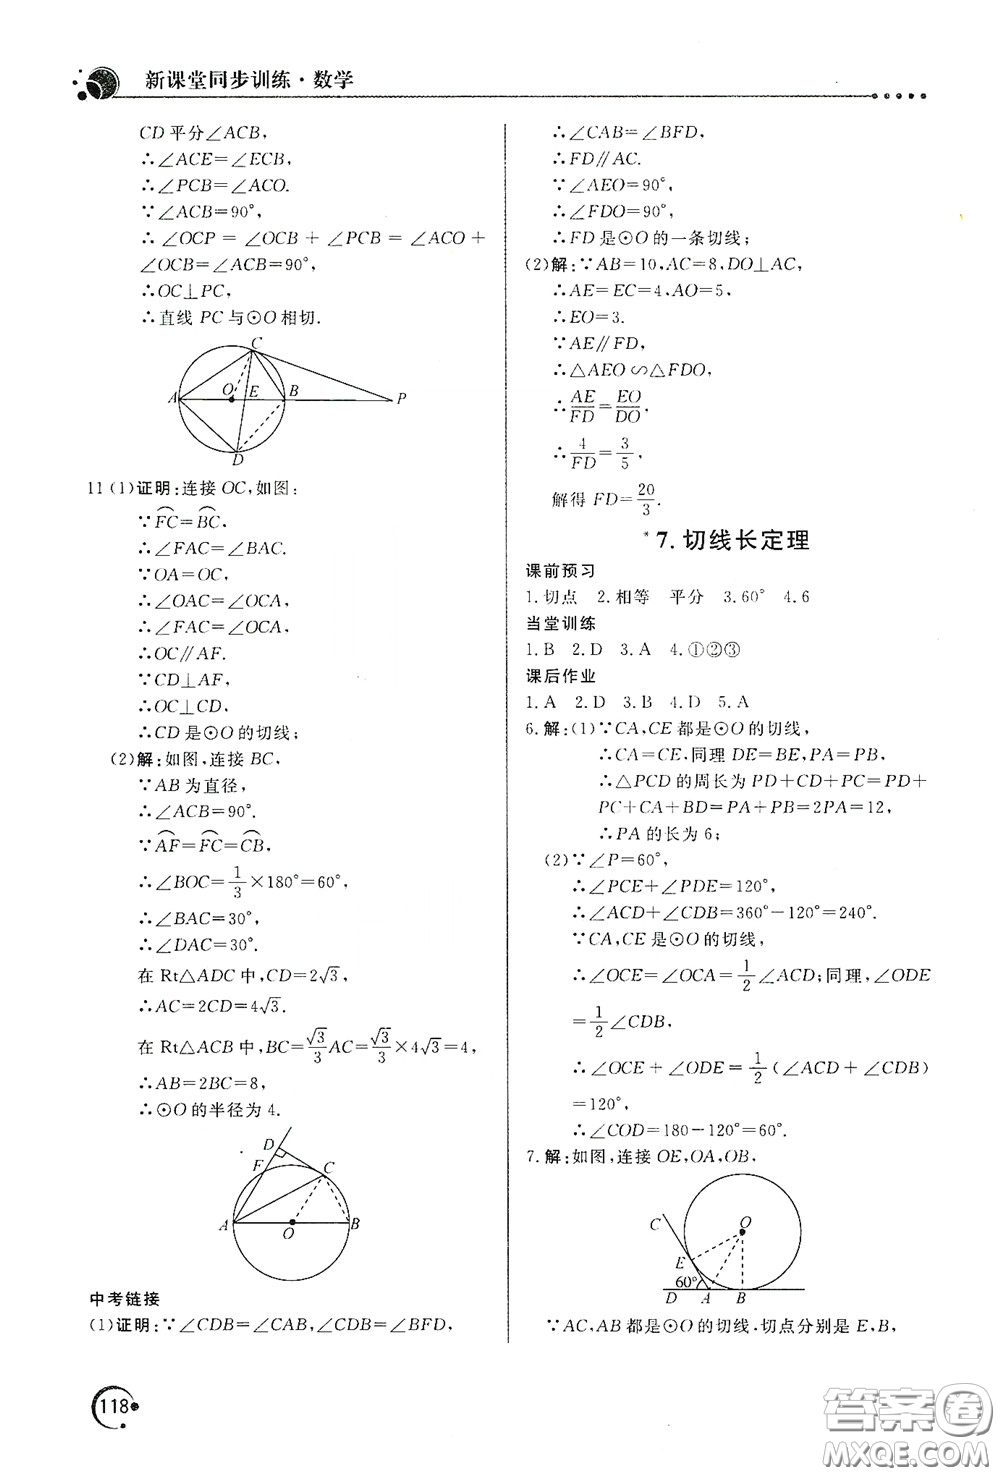 新课堂同步训练·数学
CD平分∠ACB,
∴∠ACE=∠ECB,
∴∠PCB=∠ACO.
∵∠ACB=90°,
∴∠OCP=∠OCB+∠PCB=∠ACO+
∠OCB=∠ACB=90°,
∴OC⊥PC,
∴直线PC与⊙O相切.
C
A O E B P
D
11(1)证明:连接OC,如图:
∵FC⌒=BC⌒,
∴∠FAC=∠BAC.
∵OA=OC,
∴∠OAC=∠OCA,
∴∠FAC=∠OCA,
∴OC∥AF.
∵CD⊥AF,
∴OC⊥CD,
∴CD是⊙O的切线;
(2)解:如图,连接BC,
∵AB为直径,
∴∠ACB=90°.
∵AF⌒=FC⌒=CB⌒,
∴∠BOC=1/3×180°=60°,
∴∠BAC=30°,
∴∠DAC=30°.
在Rt△ADC中,CD=2√3,
∴AC=2CD=4√3.
在Rt△ACB中,BC=√3/3AC=√3/3×4√3=4,
∴AB=2BC=8,
∴⊙O的半径为4.
D
F C
A O B
中考链接
(1)证明:∵∠CDB=∠CAB,∠CDB=∠BFD,
∴∠CAB=∠BFD,
∴FD∥AC.
∵∠AEO=90°,
∴∠FDO=90°,
∴FD是⊙O的一条切线;
(2)解:∵AB=10,AC=8,DO⊥AC,
∴AE=EC=4,AO=5,
∴EO=3.
∵AE∥FD,
∴△AEO∽△FDO,
∴AE/FD=EO/DO.
∴4/FD=3/5,
解得FD=20/3.
*7.切线长定理
课前预习
1.切点 2.相等 平分 3.60° 4.6
当堂训练
1.B 2.D 3.A 4.①②③
课后作业
1.A 2.D 3.B 4.D 5.A
6.解:(1)∵CA,CE都是⊙O的切线,
∴CA=CE,同理DE=BE,PA=PB,
∴△PCD的周长为PD+CD+PC=PD+
PC+CA+BD=PA+PB=2PA=12,
∴PA的长为6;
(2)∵∠P=60°,
∴∠PCE+∠PDE=120°,
∴∠ACD+∠CDB=360°-120°=240°.
∵CA,CE是⊙O的切线,
∴∠OCE=∠OCA=1/2∠ACD;同理,∠ODE
=1/2∠CDB,
∴∠OCE+∠ODE=1/2(∠ACD+∠CDB)
=120°,
∴∠COD=180-120°=60°.
7.解:如图,连接OE,OA,OB,
C O
E
60°
D A B
∵AC,AB都是⊙O的切线.切点分别是E,B,
118
答案圈
MXQE.COM